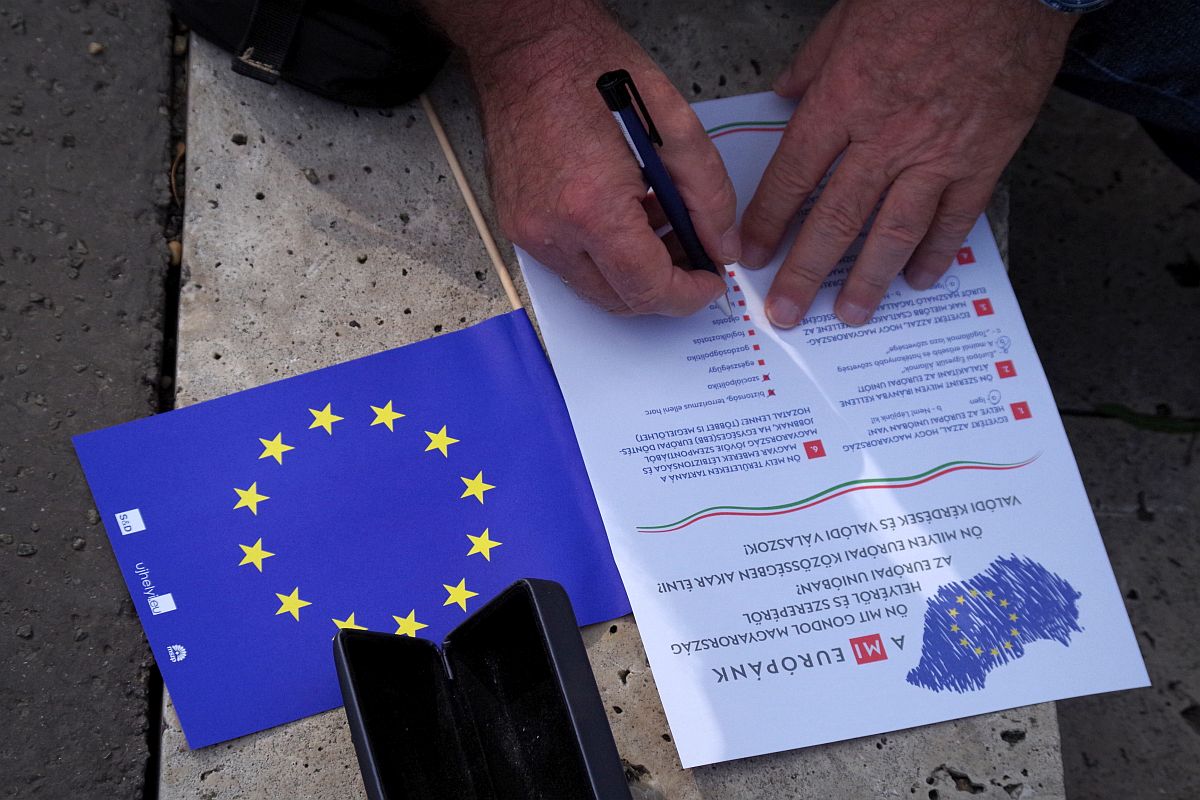 A MI EURÓPÁNK
ÖN MIT GONDOL MAGYARORSZÁG
HELYÉRŐL ÉS SZEREPÉRŐL
AZ EURÓPAI UNIÓBAN?
ÖN MILYEN EURÓPAI KÖZÖSSÉGBEN AKAR ÉLNI?
VALÓDI KÉRDÉSEK ÉS VALÓDI VÁLASZOK!
1. EGYETÉRT AZZAL, HOGY MAGYARORSZÁG
HELYE AZ EURÓPAI UNIÓBAN VAN?
a - Igen b - Nem! Lépjünk ki!
2. ÖN SZERINT MILYEN IRÁNYBA KELLENE
ÁTALAKÍTANI AZ EURÓPAI UNIÓT?
"Európai Egyesült Államok"
b - A mainál erősebb és hatékonyabb szövetség
c - "Tagállamok laza szövetsége"
3. EGYETÉRT AZZAL, HOGY MAGYARORSZÁG-
NAK MIELŐBB CSATLAKOZNIA KELLENE AZ
EURÓT HASZNÁLÓ
a - Igen
4.
6. ÖN MELY TERÜLETEKEN TARTANÁ A
MAGYAR EMBEREK LÉTBIZTONSÁGA ÉS
MAGYARORSZÁG JÖVŐJE SZEMPONTJÁBÓL
JOBBNAK, HA EGYSÉGES(EBB) EURÓPAI DÖNTÉS-
HOZATAL LENNE (TÖBBET IS MEGJELÖLHET)
biztonság, terrorizmus elleni harc
szociálpolitika
egészségügy
gazdaságpolitika
foglalkoztatás
oktatás
S&D
ujhelyi.eu
mszp